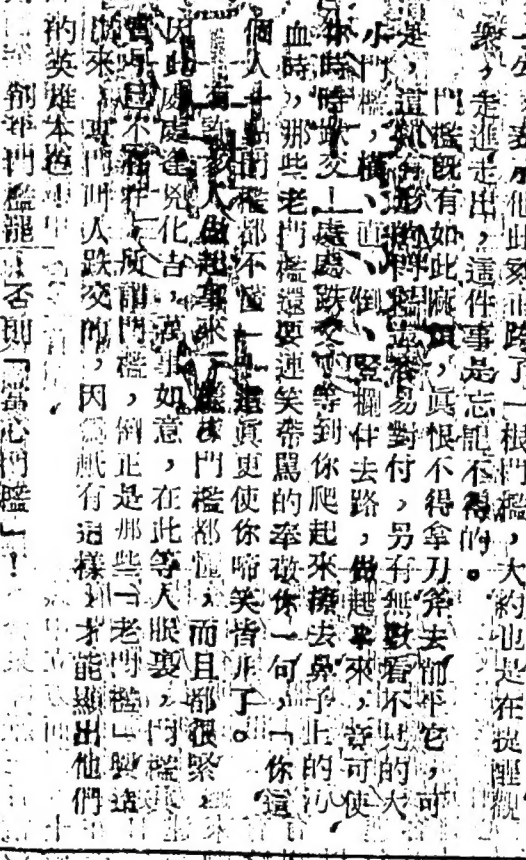 此來正跨了一根門檻，大約也是在提醒觀
衆，走進走出，這件事是忘記不得的。
門檻旣有如此麻煩，眞恨不得拿刀斧去削平它，可
是，這有形的門檻還容易對付，另有無數看不見的大
小門檻，橫、直、倒、竪攔住去路，做起事來，竟可使
你時時跌交！處處跌交！等到你爬起來揩去鼻子上的
血時，那些老門檻還要連笑帶罵的奉敬你一句，「你這
個人一點門檻都不懂」這眞更使你啼笑皆非了。
有許多人做起事來，門檻都懂，而且都很緊，
因此處處逢兇化吉，萬事如意，在此等人眼裏，門檻
不存在，所謂門檻，倒正是那些「老門檻」興造
出來，專門叫人跌交的，因爲祇有這樣，才能顯出他們
的英雄本色
削平門檻罷！否則「當心門檻」！